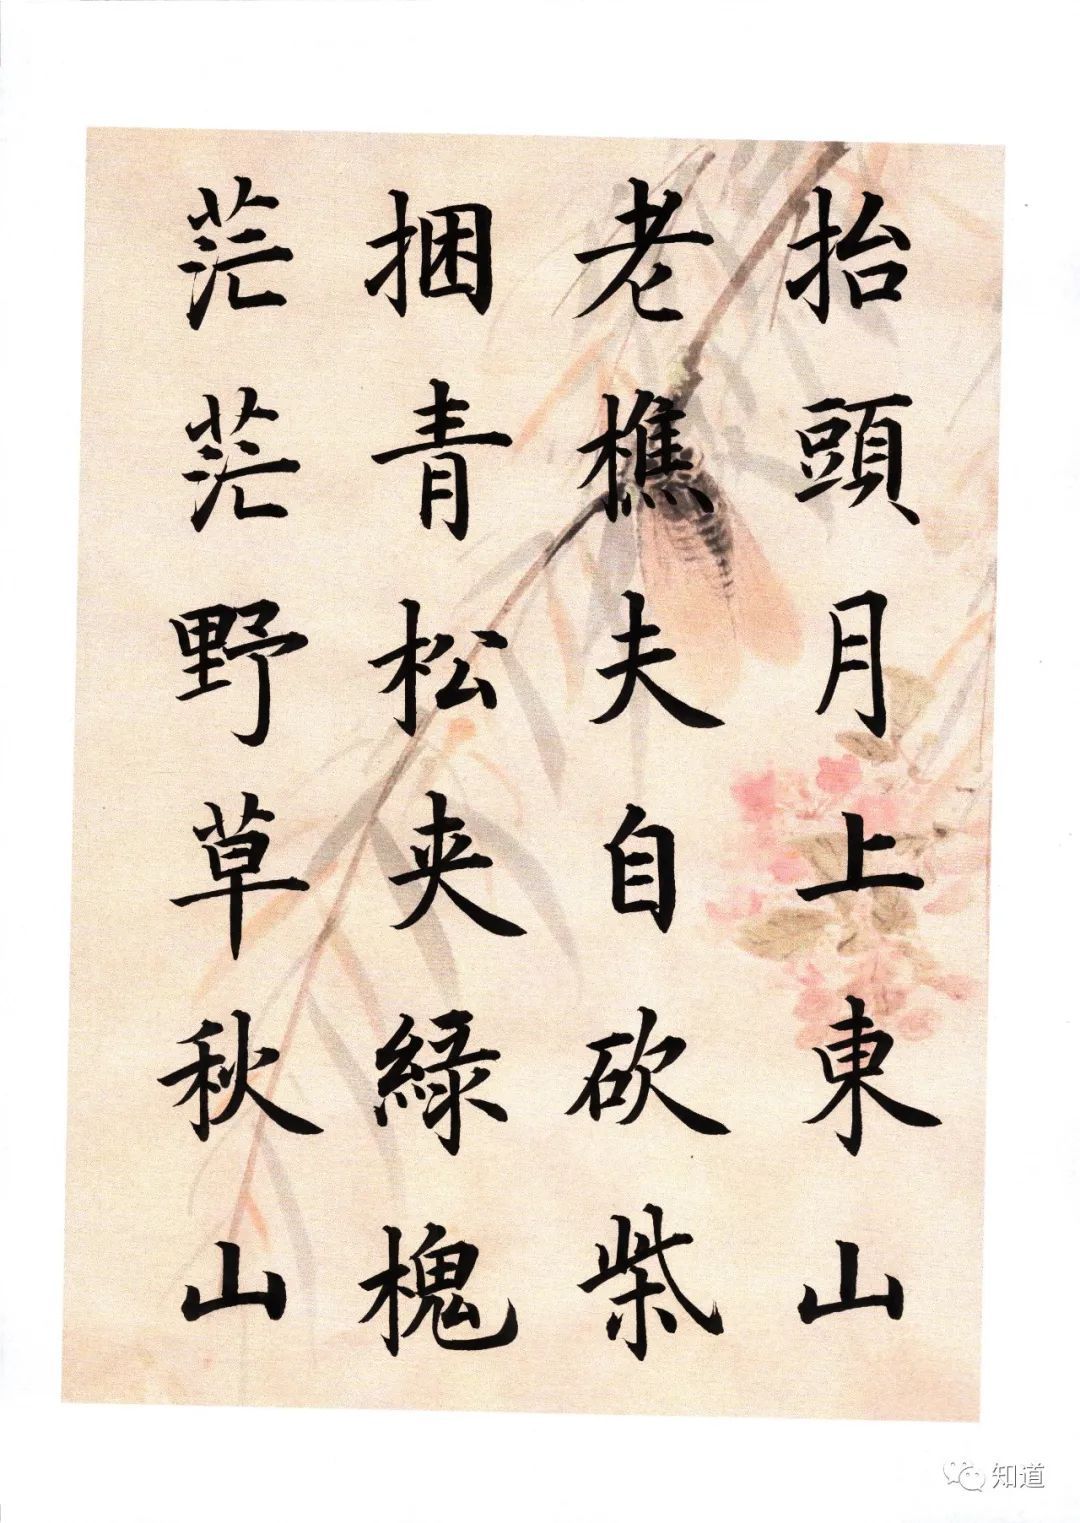 抬頭月上東山
老樵夫自砍柴
捆青松夹綠槐
茫茫野草秋山
知道